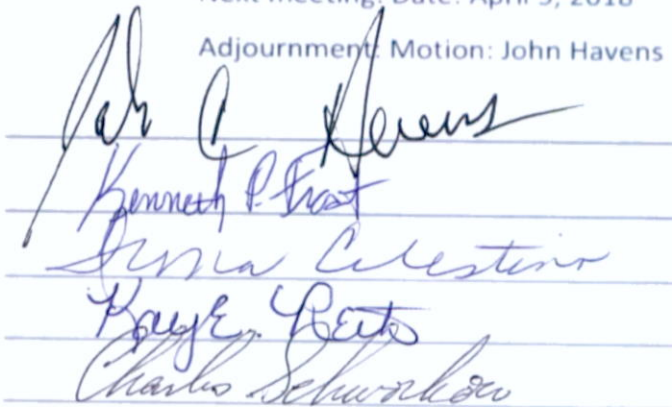 Next Meeting: Date: April 5, 2018
Adjournment: Motion: John Havens
John C Havens
Kenneth P. Frost
Celestino
Kay E.
Charles